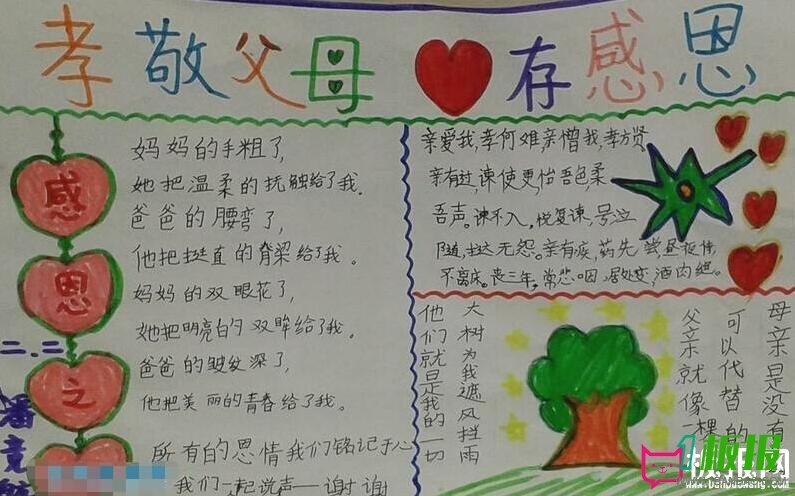 孝敬父母 存感恩
感恩之
二.二
潘竟
妈妈的手粗了,
她把温柔的抚触给了我.
爸爸的腰弯了,
他把挺直的脊梁给了我.
妈妈的双眼花了,
她把明亮的双眸给了我.
爸爸的皱纹深了,
他把美丽的青春给了我.
所有的恩情我们铭记于心
我们一起说声 谢谢
亲爱我,孝何难,亲憎我,孝方贤
亲有过,谏使更怡吾色柔
吾声.谏不入,悦复谏,号泣
随,挞无怨.亲有疾,药先尝昼夜侍
不离床.丧三年.常悲咽,居处变,酒肉绝.
母亲是没有
可以代替的
父亲就像一棵
大树为我遮风挡雨
他们就是我的一切
板报
板报网
www.banbaowang.com